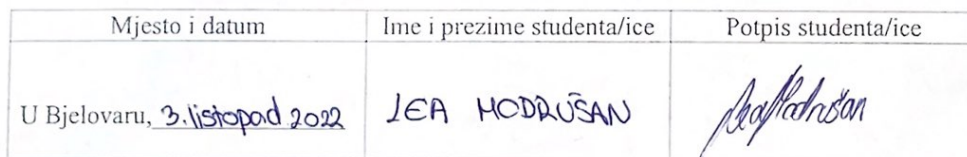 Mjesto i datum
Ime i prezime studenta/ice
Potpis studenta/ice
U Bjelovaru, 3. listopad 2022
LEA MODRUŠAN
Lea Modrušan